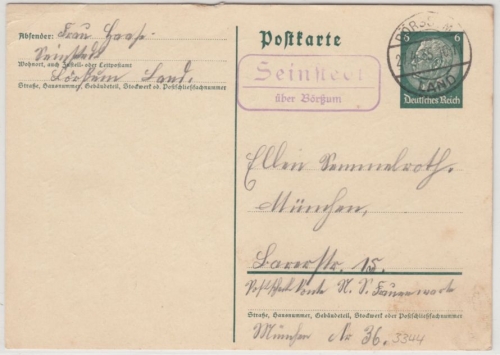 Absender: Frau Haase
Seinstedt
Wohnort, auch Zustell- oder Leitpostamt
Börßum Land.
Straße, Hausnummer, Gebäudeteil, Stockwerk od. Postschließfachnummer
Postkarte
Seinstedt
über Börßum
6
BÖRSSUM
LAND
Deutsches Reich
Ellen Semmelroth.
München,
Barerstr. 15.
Postscheck Konto N. S. Frauenwarte
Straße, Hausnummer, Gebäudeteil, Stockwerk oder Postschließfachnummer
München Nr 36. 3344